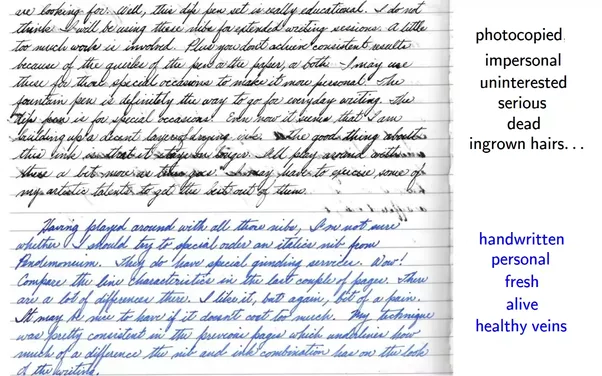 are looking for. Well, this dip pen set is really educational. I do not
think I will be using these nibs for extended writing sessions. A little
too much work is involved. Plus you don't achieve consistent results
because of the quirks of the pen or the paper, or both - I may use
these for those special occasions to make it more personal. The
fountain pen is definitely the way to go for everyday writing. The
dip pen is for special occasions. Even now it seems that I am
building up a decent layer of drying ink. the good thing about
this ink is that it stays on longer. I'll play around with
these a bit more as I may have to exercise some of
my artistic talents to get the best out of them.
Having played around with all those nibs, I'm not sure
whether I should try to special order an italic nib from
Pendemonium. They do have special grinding services. Wow!
Compare the line characteristics in the last couple of pages. There
are a lot of differences there. I like it, but again, bit of a pain.
It may be nice to have if it doesnt cost too much. My technique
was pretty consistent in the previous pages which underlines how
much of a difference the nib and ink combination has on the look
of the writing.
photocopied
impersonal
uninterested
serious
dead
ingrown hairs...
handwritten
personal
fresh
alive
healthy veins